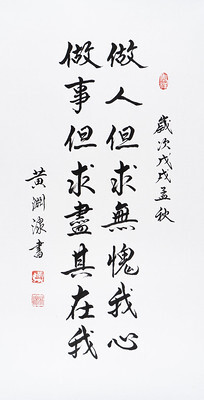 歲次戊戌孟秋
做人但求無愧我心
做事但求盡其在我
黃淵濠書